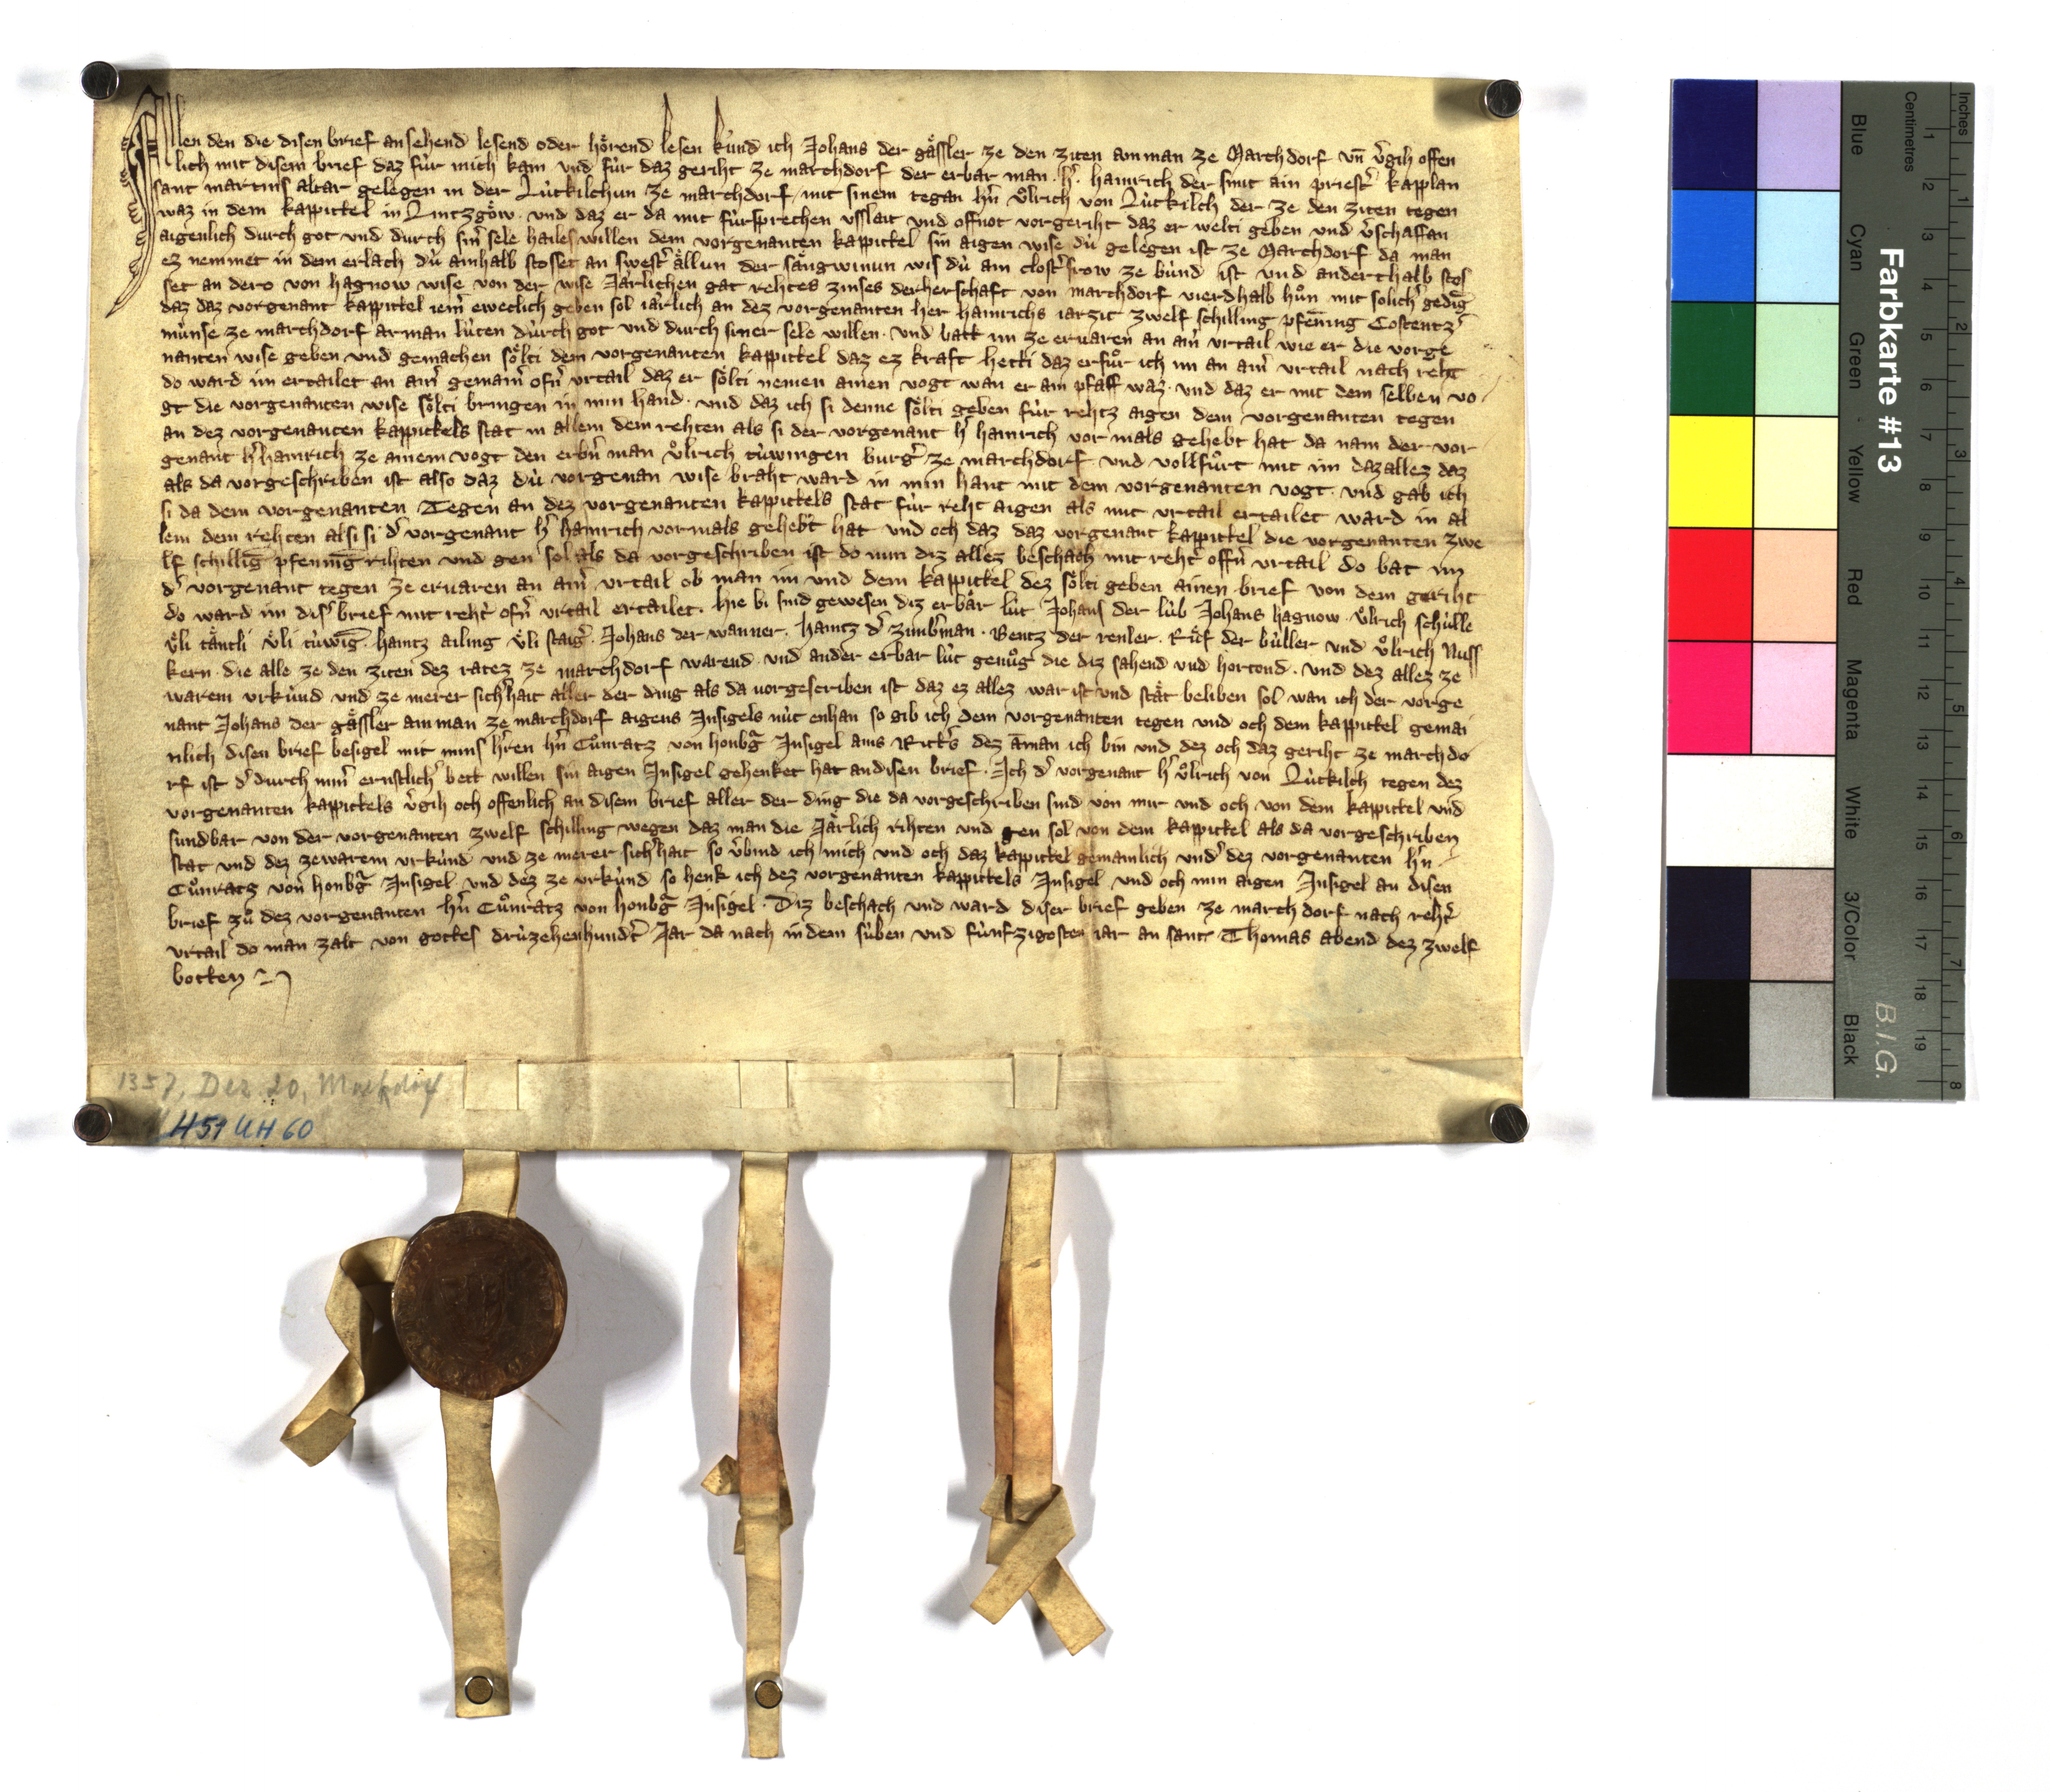 Allen den die disen brief ansehend lesend oder hörend lesen künd ich Johans der gässler ze den ziten amman ze Marchdorf vn̄ v͛gih offen
lich mit disem brief daz für mich kam vnd für daz geriht ze marchdorf der erbar man . h͛ . hainrich der smit ain priest͛ kapplan
sant martins altar gelegen in der Lútkilchun ze marchdorf mit sinem tegan hn͛ vͦlrich von Lútkilch der ze den ziten tegen
waz in dem kappittel in Lintzgöw . vnd daz er da mit fúrsprechen vsslait vnd offnot vorgeriht daz er welti geben vnd v͛schaffan
aigenlich durch got vnd durch sin͛ sele hailes willen dem vorgenanten kappittel sin aigen wise dú gelegen ist ze Marchdorf da man
ez nemmet in dem erlach dú ainhalb stosset an swest͛ ällun der sängwinun wis dú ain clost͛frow ze búnd ist vnd anderthalb stos
set an dero von hagnow wise von der wise Järlichen gat rehtes zinses derherschaft von marchdorf vierdhalb hůn mit solich͛ geding̅
daz daz vorgenant kappittel iem͛ eweclich geben sol iärlich an dez vorgenanten her hainrichs iarzit zwelf schilling pfen̄ing Costentz͛
múnse ze marchdorf arman lúten durch got vnd durch siner sele willen . vnd batt im ze eruaren an ain͛ vrtail wie er die vorge
nanten wise geben vnd gemachen sölti dem vorgenanten kappittel daz ez kraft hetti daz erfůr ich im an ain͛ vrtail nach reht
do ward im ertailet an ain͛ gemain͛ ofn͛ vrtail daz er sölti nemen ainen vogt wan er ain pfaff waz . vnd daz er mit dem selben vo
gt die vorgenanten wise sölti bringen in min hand . vnd daz ich si denne sölti geben fúr rehtz aigen dem vorgenanten tegen
an dez vorgenanten kappittels stat in allem dem rehten als si der vorgenant h͛ hainrich vor mals gehebt hat da nam der vor
genant h͛ hainrich ze ainem vogt den erbn͛ man vͦlrich túwingen burg͛ ze marchdorf vnd vollfůrt mit im daz allez daz
als da vorgeschriben ist also daz dú vorgenan wise braht ward in min hant mit dem vorgenanten vogt . vnd gab ich
si da dem vorgenanten Tegen an dez vorgenanten kappittels stat fúr reht aigen als mit vrtail ertailet ward in al
lem dem rehten alsi si d͛ vorgenant h͛ hainrich vormals gehebt hat vnd och daz daz vorgenant kappittel die vorgenanten zwe
lf schillig̅ pfennig̅ rihten vnd gen sol als da vorgeschriben ist do nun diz allez beschach mit reht͛ offn͛ vrtail do bat im
d͛ vorgenant tegen ze eruaren an ain͛ vrtail ob man im vnd dem kappittel dez sölti geben ainen brief von dem geriht
do ward im dis͛ brief mit reht͛ ofn͛ vrtail ertailet . hie bi sind gewesen diz erbär lút Johans der lúb Johans hagnow . vͦlrich schúlle
vͦli täntli vͦli túwig̅ . haintz ailing vͦli staig͛ . Johans der wanner . haintz d͛ zimb͛man . Bentz der renler . Rüf der búller vnd vͦlrich Nuss
kern . die alle ze den ziten dez ratez ze marchdorf warend . vnd ander erbar lút genůg die diz sahend vnd hortond . vnd dez allez ze
warem vrkúnd vnd ze merer sich͛hait aller der ding als da uorgescriben ist daz ez allez war ist vnd stät beliben sol wan ich der vorge
nant Johans der gässler amman ze marchdorf aigens Insigels nút enhan so gib ich dem vorgenanten tegen vnd och dem kappittel gemai
nlich disen brief besigel mit mins h͛ren hn͛ Cůnratz von honbg͛ Insigel ains Ritt͛s dez āman ich bin vnd dez och daz geriht ze marchdo
rf ist d͛ durch min͛ ernstlich͛ bett willen sin aigen Insigel gehenket hat andisen brief . Ich d͛ vorgenant h͛ vͦlrich von Lútkilch tegen dez
vorgenanten kappittels v͛gih och offenlich an disem brief aller der ding die da vorgeschriben sind von mir vnd och von dem kappittel vnd
sundbar von der vorgenanten zwelf schilling wegen daz man die Järlich rihten vnd gen sol von dem kappittel als da vorgeschriben
stat vnd dez zewarem vrkúnd vnd ze merer sich͛hait so v͛bind ich mich vnd och daz kappittel gemainlich vnd͛ dez vorgenanten hn͛
Cůnratz von honbg͛ Insigel vnd dez ze vrkúnd so henk ich dez vorgenanten kappittels Insigel vnd och min aigen Insigel an disen
brief zů dez vorgenanten hn͛ Cůnratz von honbg͛ Insigel . Diz beschach vnd ward diser brief geben ze marchdorf nach reht͛
vrtail do man zalt von gottes drúzehenhundt͛ Jar da nach indem súben vnd fúnfzigosten iar an sant Thomas abend dez zwelf
botten
1357, Dez 20, Markdorf
H51 UH 60
Farbkarte #13
B.I.G.
Blue Cyan Green Yellow Red Magenta White 3/Color Black
Centimetres
1 2 3 4 5 6 7 8 9 10 11 12 13 14 15 16 17 18 19
Inches
1 2 3 4 5 6 7 8